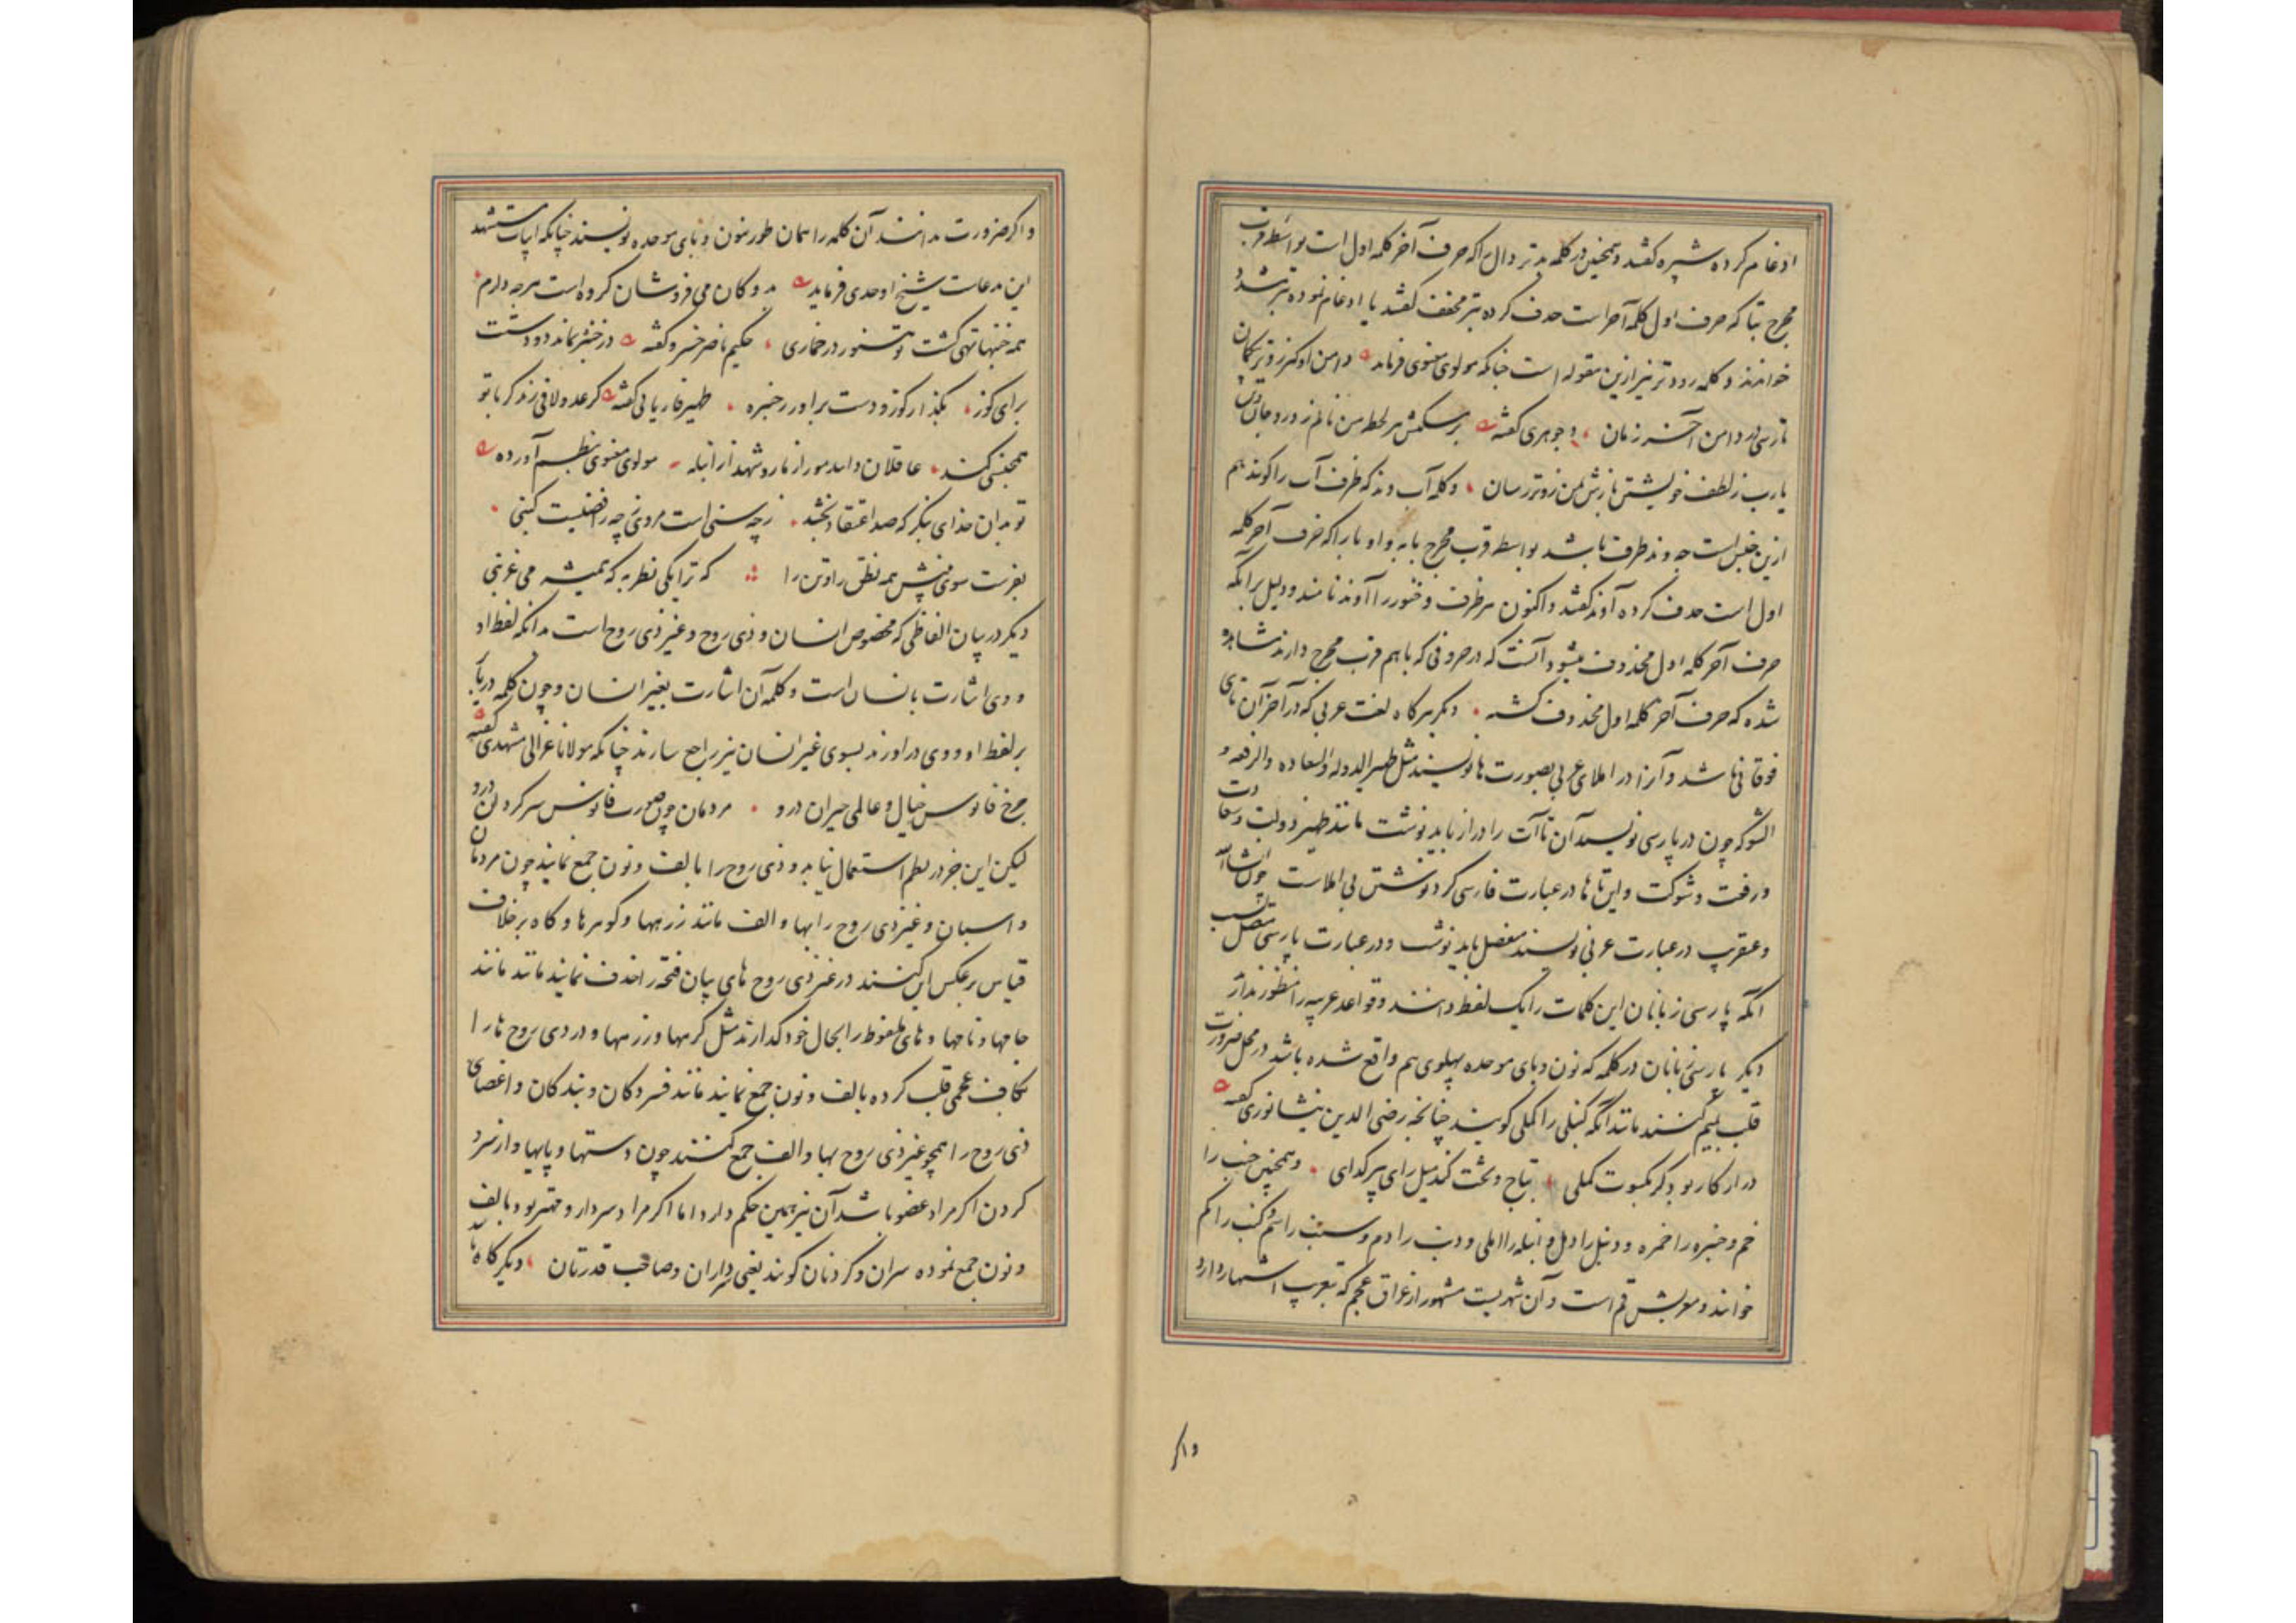 ادغام کرده شپره گفتند و همچنین در کلمه بدتر دال را که حرف آخر کلمه اول است بواسطه قرب
مخرج بتا که حرف اول کلمه آخر است حذف کرده بتر مخفف گفتند یا ادغام نموده بتر مشدد
خوانند و کلمه زودتر نیز ازین مقوله است چنانکه مولوی معنوی فرماید دامن او گیر زوتر بیکمان
تا رسی در دامن آخر زمان و جوهری گفته هر لحظه من نالم ز درد جان
یارب ز لطف خویشتن بازش بمن زوتر رسان و کلمه آب وند که ظرف آب را گویند هم
ازین جنس است چه وند ظرف باشد بواسطه قرب مخرج با به واو با را که حرف آخر کلمه
اول است حذف کرده آوند گفتند و اکنون هر ظرف و خنور را آوند نامند و دلیل برانکه
حرف آخر کلمه اول محذوف میشود آنست که در حروفی که باهم قرب مخرج دارند مشاهده
شده که حرف آخر کلمه اول محذوف گشته دیگر هرگاه لغت عربی که در آخر آن تای
فوقانی باشد و آنرا در املای عربی بصورت ها نویسند مثل ظهیر الدوله والسعاده والرفعه و
الشوکه چون در پارسی نویسند آن تاآت را دراز باید نوشت مانند ظهیر دولت و سعادت
و رفعت و شوکت و این تا ها در عبارت فارسی گرد نوشتن بی املاست چون انشاءالله
و عنقریب در عبارت عربی نویسند منفصل باید نوشت و در عبارت پارسی متصل بسبب
آنکه پارسی زبانان این کلمات را یک لفظ دانند و قواعد عربیه را منظور ندارند
دیگر پارسی زبانان در کلمه که نون و بای موحده پهلوی هم واقع شده باشد در محل ضرورت
قلب بمیم کنند مانند آنکه کنبلی را کملی گویند چنانچه رضی الدین نیشابوری گفته
در ار کار بود گر بکسوت کملی بتاج و تخت کند میل رای پیر گدای و همچنین خنب را
خم و خنبره را خمره و دنبل را دمل و انبله را املی و دنب را دم و سنب را سم و کنب را کم
خوانند و معربش قم است و آن شهریست مشهور از عراق عجم که بتعریب اشتهار دارد
واکر
و اگر ضرورت ندانند آن کلمه را همان طور بنون و بای موحده نویسند چنانکه ابیات مستشهد
این مدعاست شیخ اوحدی فرماید بدوکان می فروشان گروه است هرچه دارم
همه خنبها تهی گشت و هنوز در خماری حکیم ناصر خسرو گفته در خنبره بماند دو دستت
برای کوز بگذار کوز و دست برآور ز خنبره ظهیر فاریابی گفته گر عدو لافی زند کر با تو
همجنسی کند عاقلان دانند مور از مار و شهد از انبله مولوی معنوی بنظم آورده
تو بدان خدای بنگر که صد اعتقاد بخشد ز چه سنی است مروی ز چه رافضیست کنبی
بفرست سوی بینش همه نطق را و تن را که ترا یکی نظر به که همیشه می غرنبی
دیگر در بیان الفاظی که مخصوص انسان و ذی روح و غیر ذی روح است بدانکه لفظ او
و وی اشارت بانسان است و کلمه آن اشارت بغیر انسان و چون کلمه در یا بر
بر لفظ او و وی درآورند بسوی غیر انسان نیز راجع سازند چنانکه مولانا غزالی مشهدی گفته
چرخ فانوس خیال و عالمی حیران درو مردمان چون صورت فانوس سرگردان درو
لیکن این جز در نظم استعمال نیابد و ذی روح را بالف و نون جمع نمایند چون مردمان
و اسبان و غیر ذی روح را بها و الف مانند زرهها و گوهرها و گاه برخلاف
قیاس برعکس این کنند در غیر ذی روح های بیان فتحه را حذف نمایند مانند
جامها و نامها و های ملفوظ را بحال خود گذارند مثل گرهها و زرهها و در ذی روح ها را
بکاف عجمی قلب کرده بالف و نون جمع نمایند مانند فسردگان و بندگان و اعضای
ذی روح را همچو غیر ذی روح بها و الف جمع کنند چون دستها و پایها و از سر و
گردن اگر مراد عضو باشد آن نیز همین حکم دارد اما اگر مراد سردار و مهتر بود بالف
و نون جمع نموده سران و گردنان گویند یعنی سرداران و صاحب قدرتان دیگر گاه با